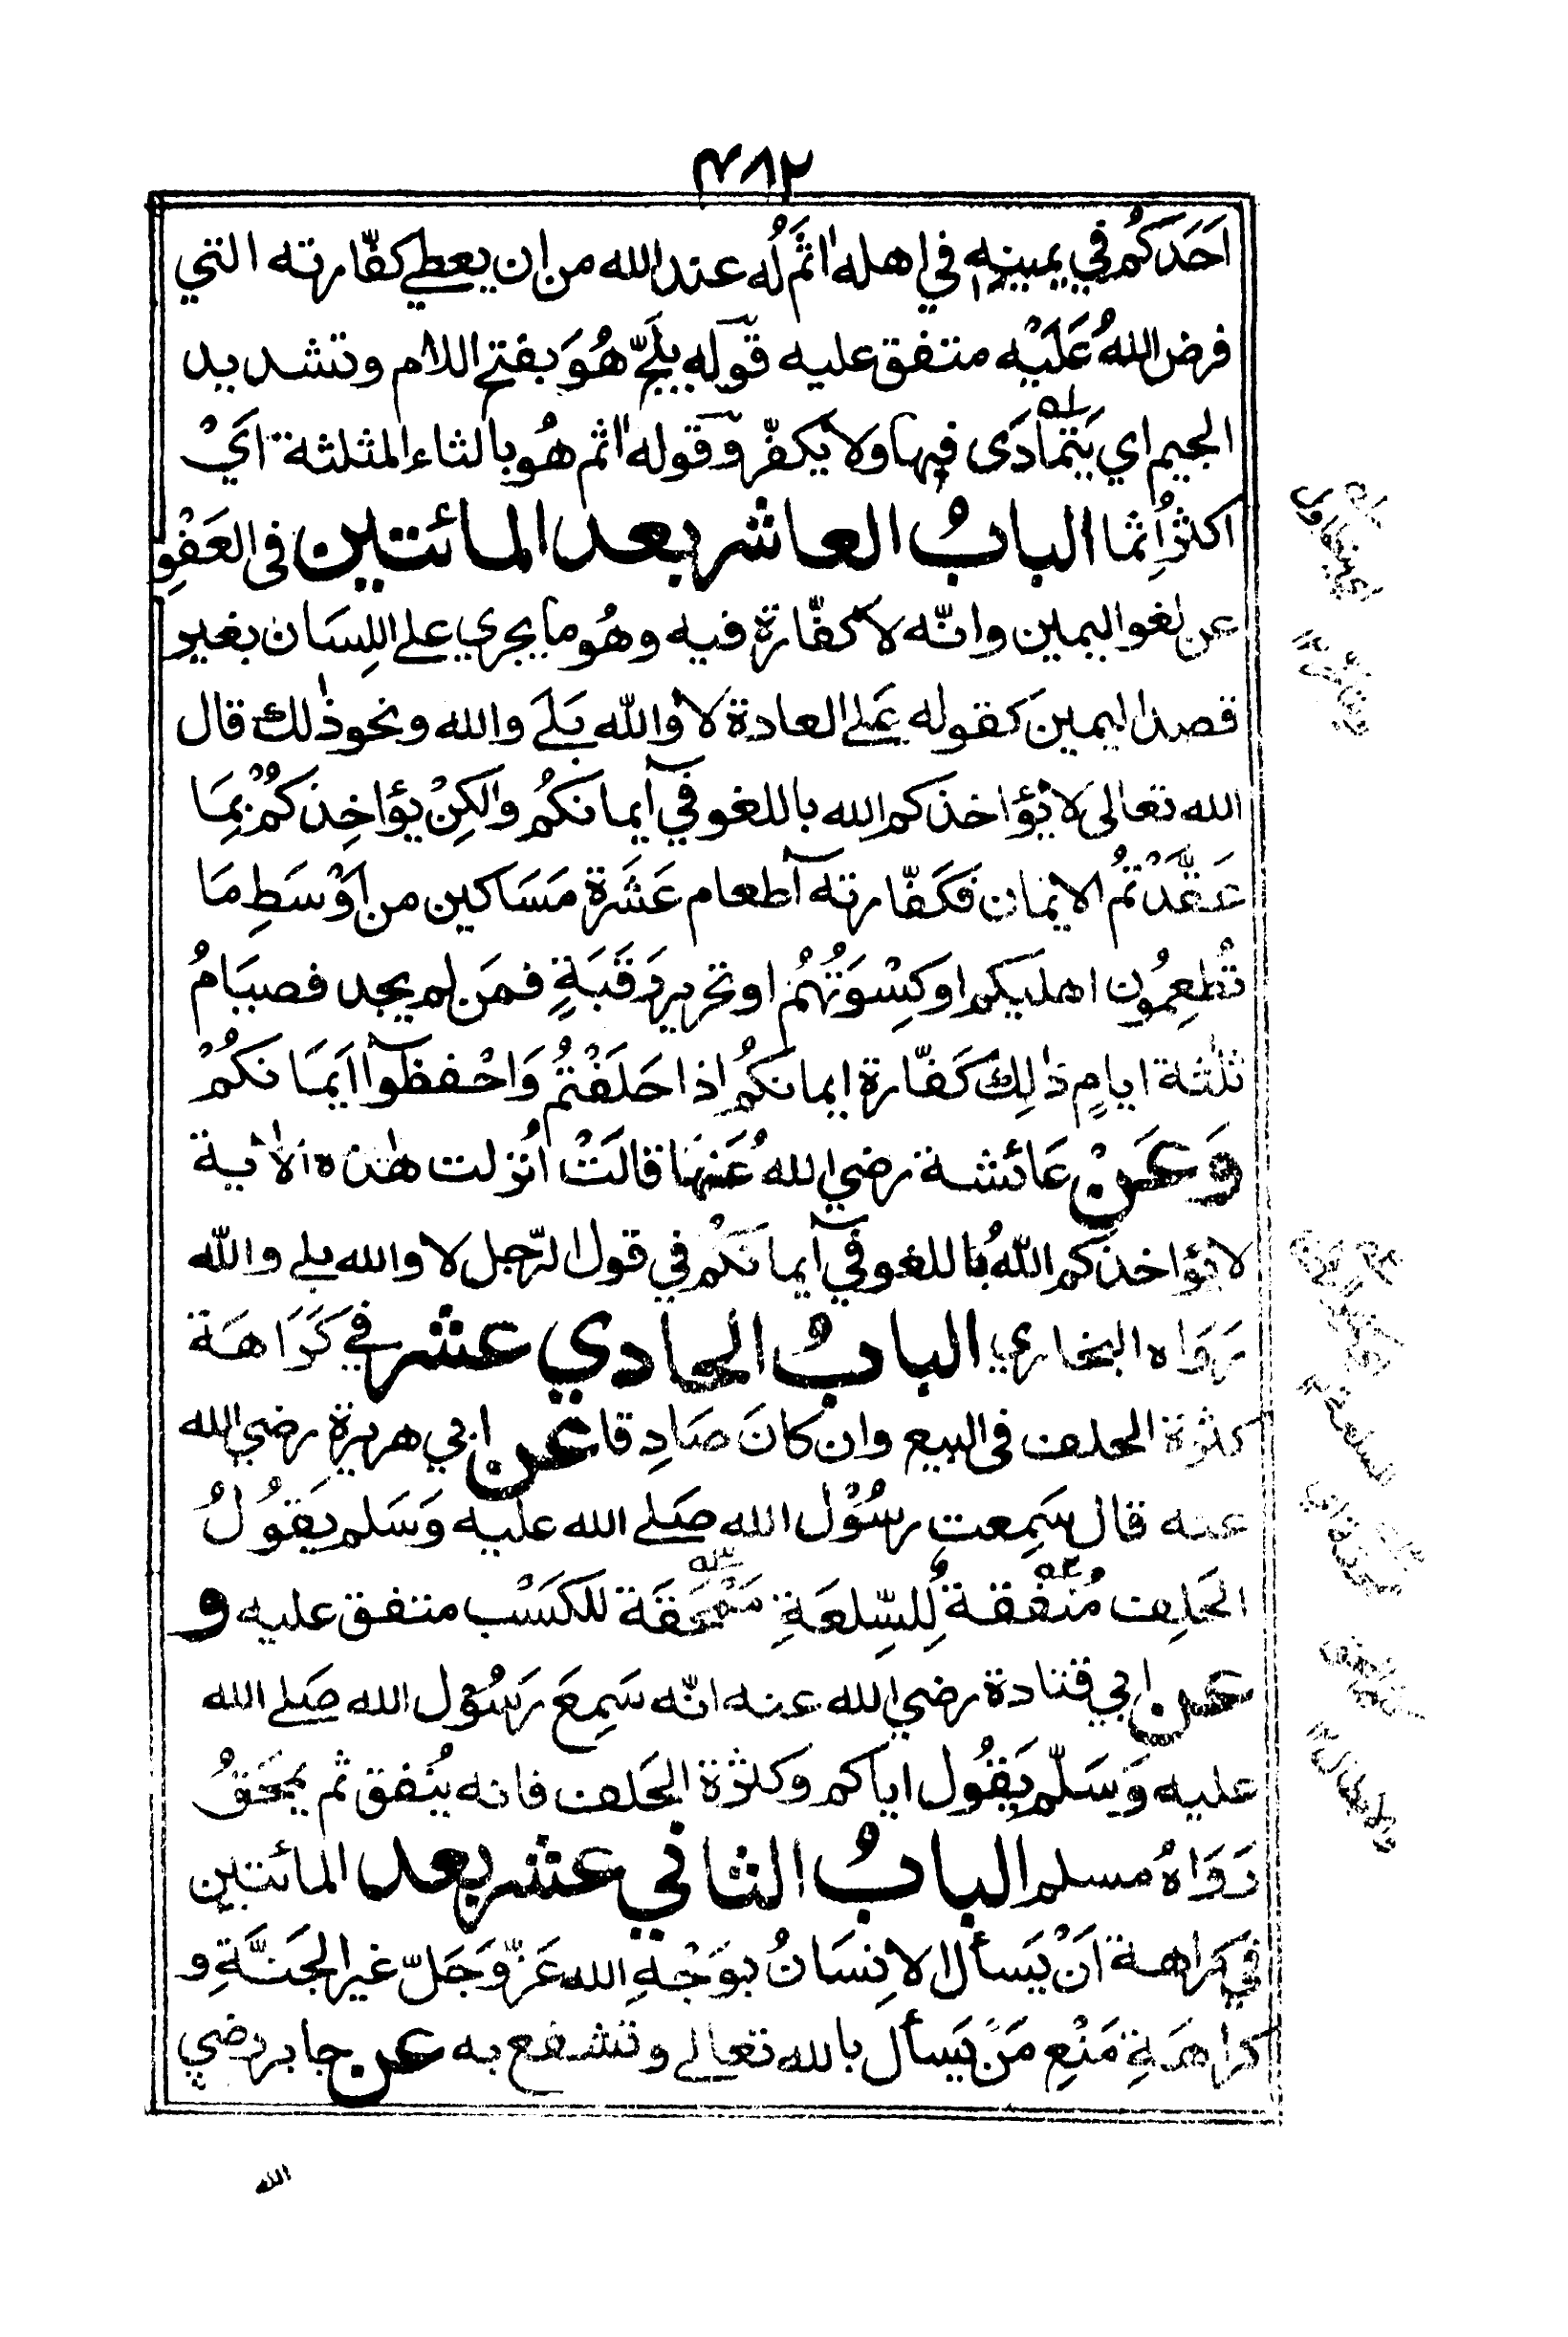 ٤٨٢
اَحَدَكُم في يمينه في اهله اٰثَمُ لُه عند الله من ان يعطي كفّارته التي
فرض اللهُ عَلَيْه متفق عليه قوله يلَجّ هُوَ بفتح اللام وتشديد
الجيم اي يَتَمادَى فيها ولا يكفّر وقوله اٰثم هُو بالثاء المثلثة ايْ
اكثر اِثما البابُ العاشر بعد المائتين في العَفْوِ
عن لغو اليمين وانّه لا كفّارة فيه وهُو ما يجري على اللِسَان بغير
قصد اليمين كقوله عَلى العادة لا والله بَلَى والله ونحو ذٰلك قال
الله تعالىٰ لا يُؤاخذكم الله باللغو في آيمانكُم ولٰكِنْ يؤاخِذكُمْ بِمَا
عَقَّدْتُمُ الايْمان فكَفّارته آطعام عَشَرة مَسَاكين من اَوْسَطِ مَا
تُطْعِمُون اهليكم او كِسْوَتُهُمْ او تحرير رَقَبَةٍ فمَن لم يجد فصيَامُ
ثلٰثة ايامٍ ذٰلِكَ كَفّارة ايمانكُم اذا حَلَفْتُمْ وَاحْفظوآ اَيمَانكُمْ
وَعَنْ عَائشة رضي اللهُ عَنهَا قالَتْ اُنزلت هٰذه الاٰية
لا يؤاخذكم اللهُ باللغو في آيمانكُم في قول الرّجل لا والله بلى والله
رَوَاه البخاري البابُ الحادي عشر في كَرَاهَة
كثرة الحلف في البيع وان كانَ صَادِقا عن ابي هريرة رضي الله
عنه قال سَمِعت رسُوْل الله صَلى الله عليه وَسَلم يَقُولُ
الحَلِف مُنْفقة لِلسِّلعَةِ مَمْحَقَة للكَسْب متفق عليه و
عن ابي قتادة رضي الله عنه انّه سَمِعَ رَسُوْل الله صَلى الله
عليه وَسَلّم يَقُول اياكم وكثرة الحَلف فانه يُنْفق ثم يمحَقُ
رَوَاهُ مسلم البابُ الثاني عشر بعد المائتين
في كراهة اَنْ يَسأل الاِنسَانُ بوَجْهِ الله عَزّ وَجَلّ غير الجَنَّةِ و
كراهَةِ مَنْعِ مَنْ يَسأل بالله تعالى وتشفع به عن جابر رضي
الله